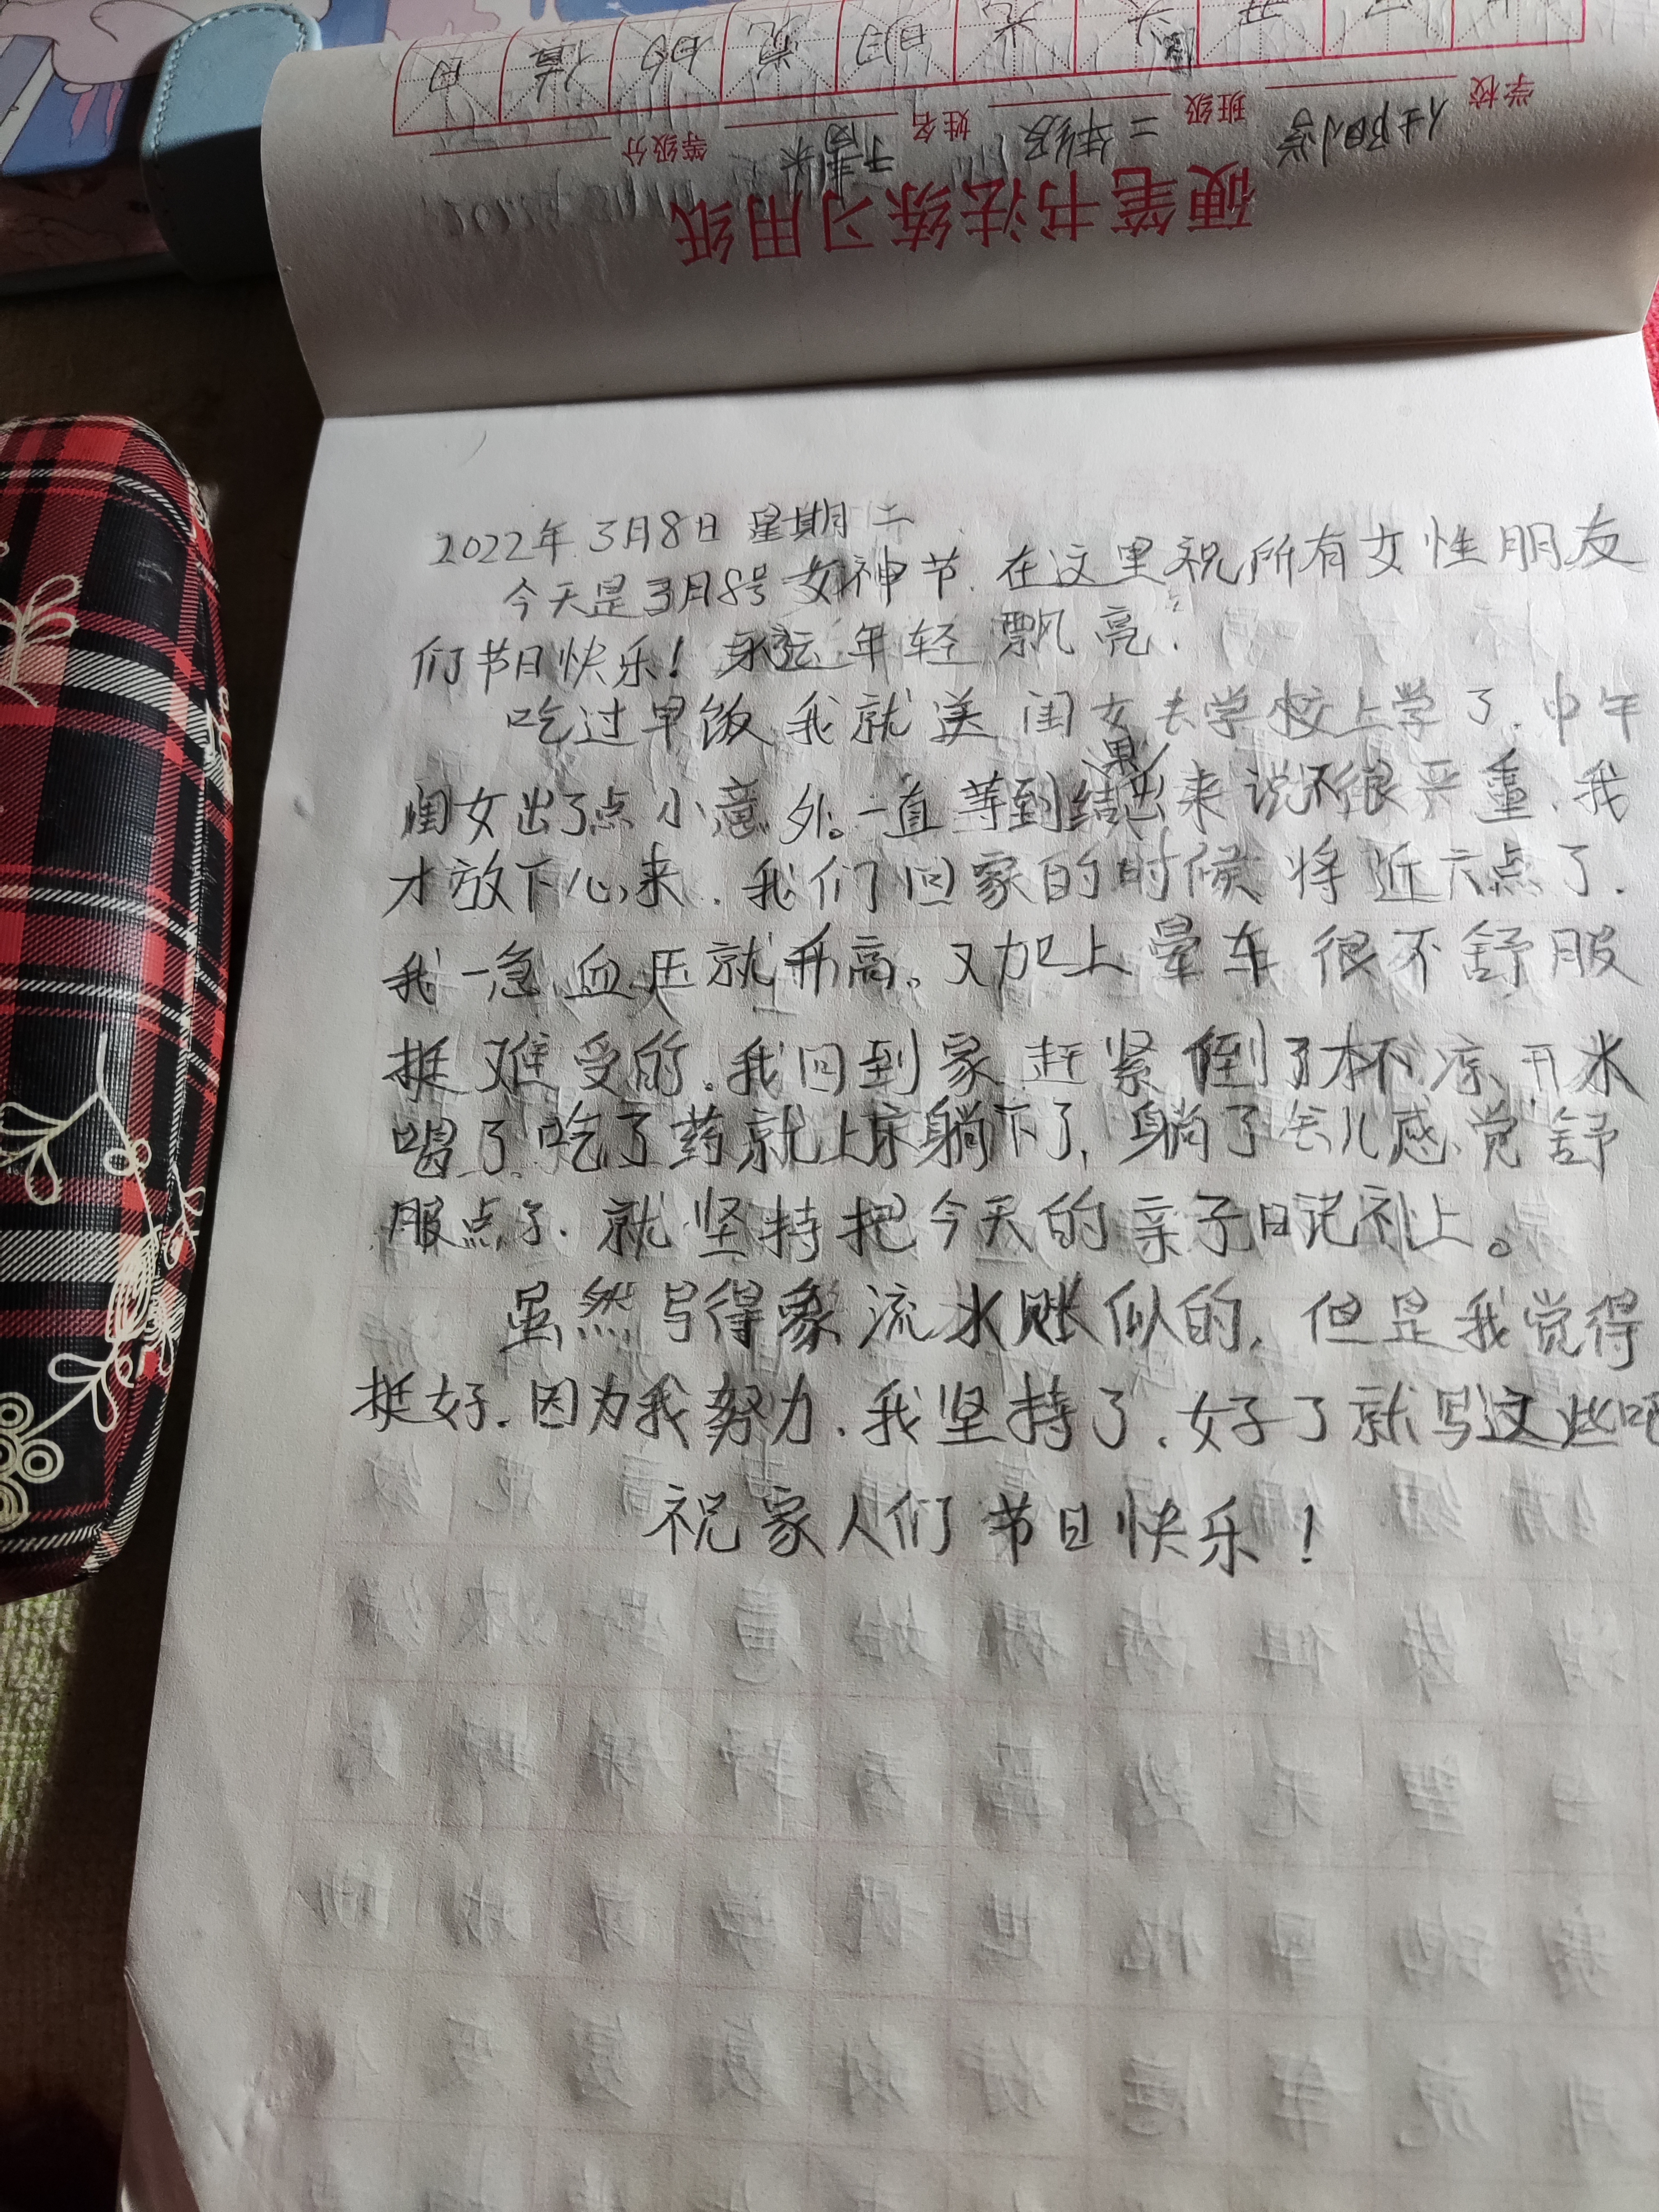 硬笔书法练习用纸
学校 班级 二年级 姓名 等级分
2022年3月8日 星期二
今天是3月8号女神节.在这里祝所有女性朋友
们节日快乐!永远年轻飘亮.
吃过早饭我就送闺女去学校上学了.中午
闺女出了点小意外。一直等到结果出来说不很严重.我
才放下心来.我们回家的时候将近六点了.
我一急血压就升高。又加上晕车很不舒服
挺难受的.我回到家赶紧倒了杯凉开水
喝了.吃了药就上床躺下了,躺了会儿感觉舒
服点了.就坚持把今天的亲子日记补上。
虽然写得象流水账似的,但是我觉得
挺好.因为我努力.我坚持了.好了就写这些吧
祝家人们节日快乐!